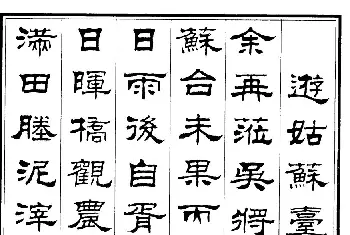 遊姑蘇臺
余再蒞吳將
蘇台未果丙
日雨後自胥
日暉橋觀農
滿田塍泥滓